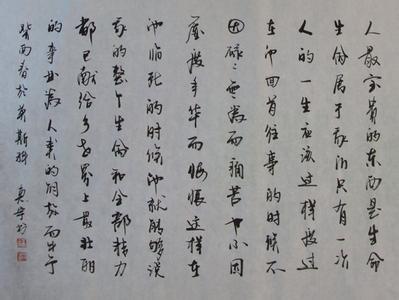 人最宝贵的东西是生命
生命属于我们只有一次
人的一生应该这样度过
在他回首往事的时候不
因碌碌无为而痛苦也不因
虚度年华而悔恨这样在
他临死的时候他就能够说
我的整个生命和全部精力
都已献给了世界上最壮丽
的事业为人类的解放而斗争
癸酉春於莫斯科